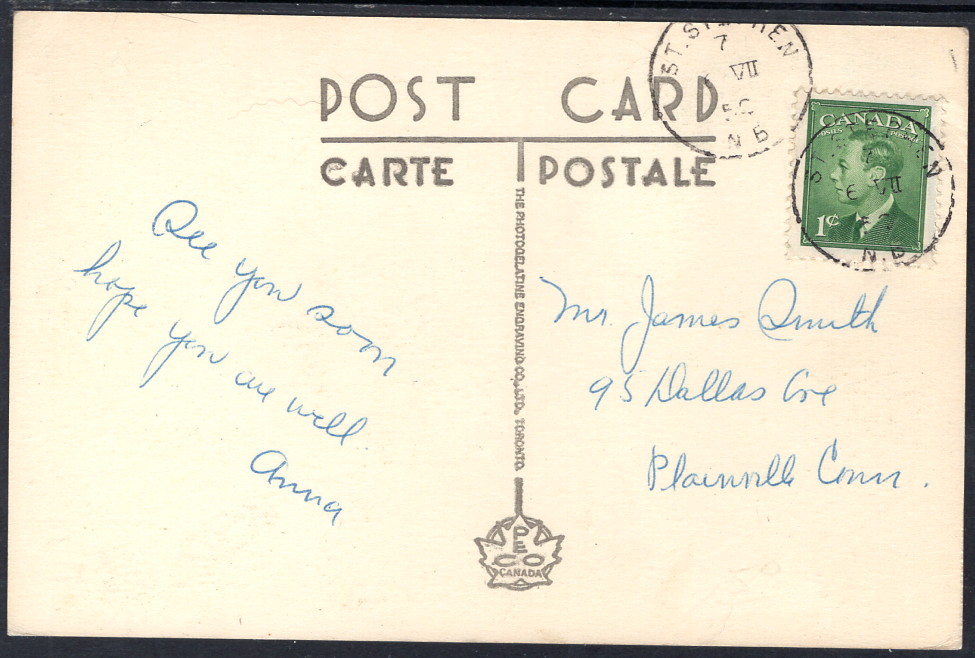 POST CARD
CARTE POSTALE
ST. STEPHEN
7
VII
50
N B
CANADA
POSTES POSTAGE
1¢
ST. STEPHEN
7
6 VII
50
N.B
THE PHOTOGELATINE ENGRAVING CO., LTD., TORONTO.
See you soon
hope you are well.
Anna
Mr. James Smith
95 Dallas Ave
Plainville Conn.
PECO
CANADA